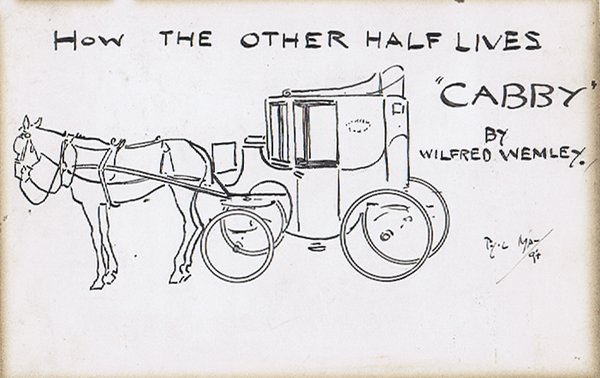 HOW THE OTHER HALF LIVES
"CABBY"
BY
WILFRED WEMLEY.